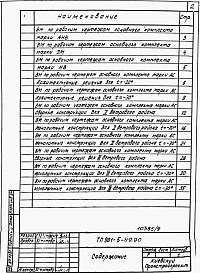 2
Наименование
Стр
ВМ по рабочим чертежам основного комплекта
марки АНВ
3
ВМ по рабочим чертежам основного комплекта
марки ЭМ
4
ВМ по рабочим чертежам основного комплекта
марки НВ
5
ВМ по рабочим чертежам основного комплекта марки АС
Архитектурные решения для t=-20°
ВМ по рабочим чертежам основного комплекта марки АС
Архитектурные решения для t=-30°
ВМ по рабочим чертежам основного комплекта марки АС
сборные конструкции для II ветрового района
12
ВМ по рабочим чертежам основного комплекта марки АС
Монолитные конструкции для II ветрового района t=-20°
16
ВМ по рабочим чертежам основного комплекта марки АС
Монолитные конструкции для II ветрового района t=-30°
21
ВМ по рабочим чертежам основного комплекта марки АС
Сборные конструкции для
ветрового района
26
ВМ по рабочим чертежам основного комплекта марки АС
Монолитные конструкции для
ветрового района t=-20°
30
ВМ по рабочим чертежам основного комплекта марки АС
Монолитные конструкции для
ветрового района t=-30°
35
10385/9
Содержание
Киевский
Промстройпроект